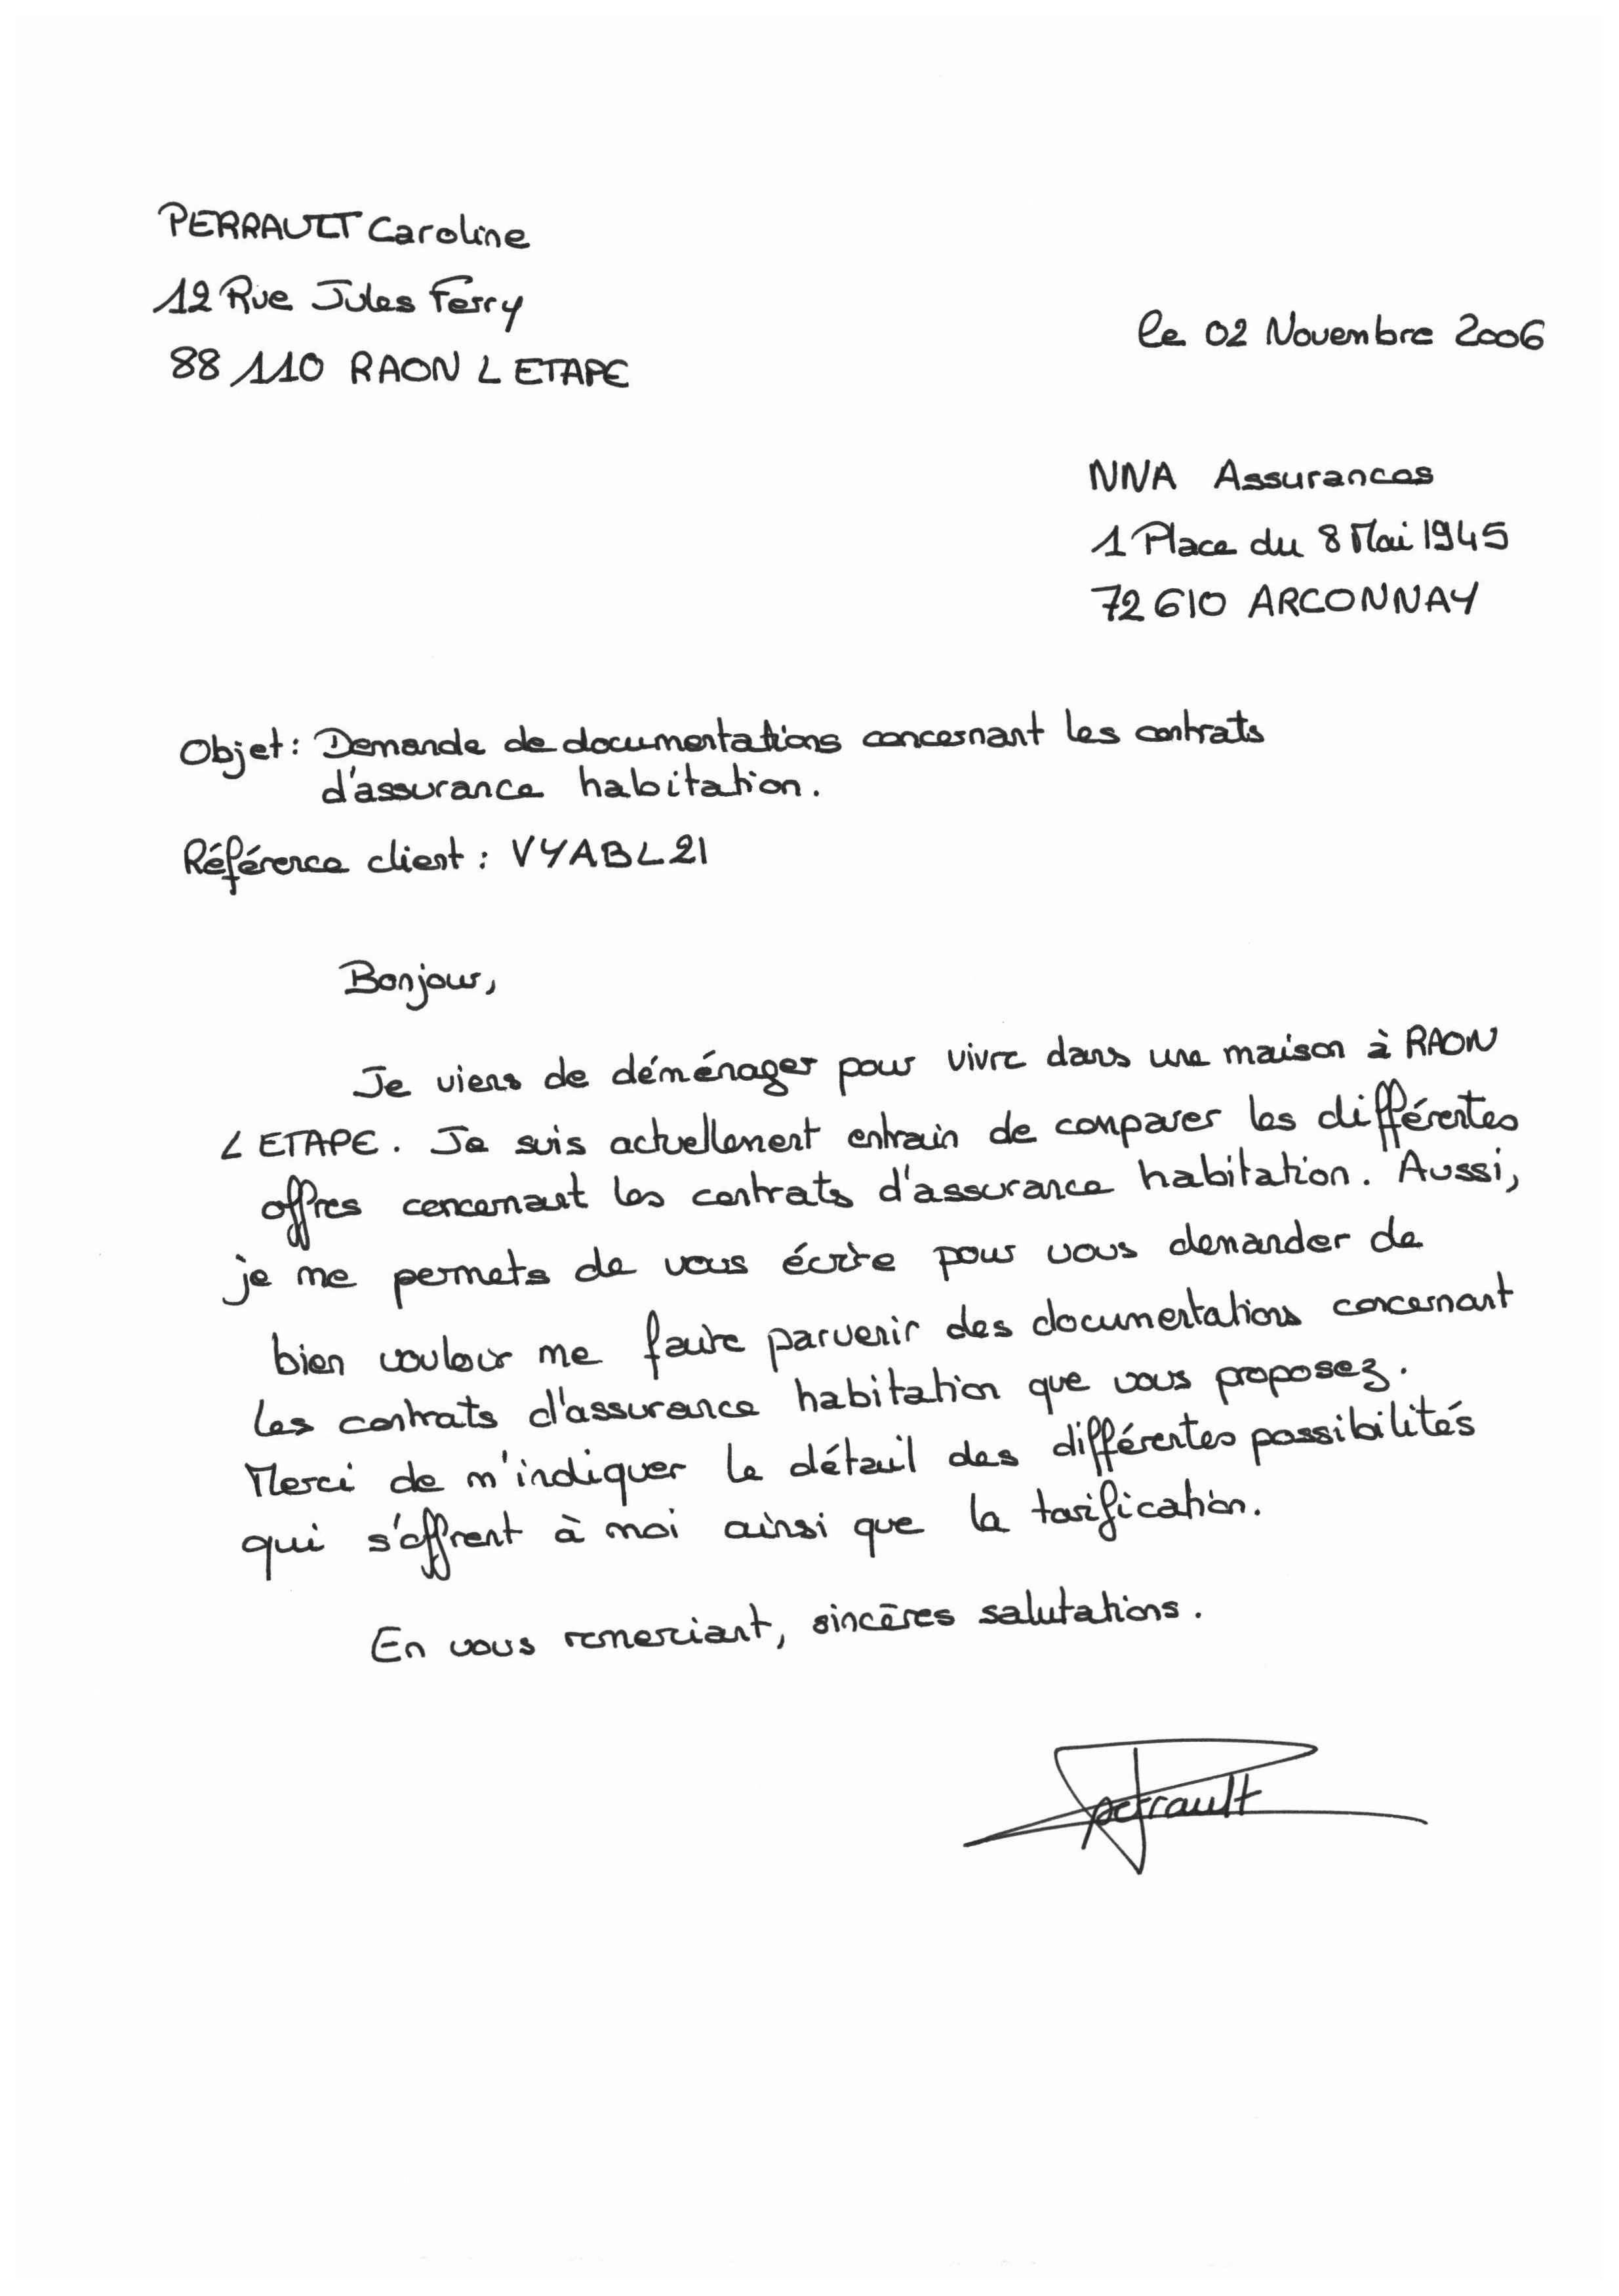 PERRAULT Caroline
12 Rue Jules Ferry
88 110 RAON L ETAPE
le 02 Novembre 2006
NNA Assurances
1 Place du 8 Mai 1945
72 610 ARCONNAY
Objet : Demande de documentations concernant les contrats
d'assurance habitation.
Référence client : VYABL21
Bonjour,
Je viens de déménager pour vivre dans une maison à RAON
L ETAPE. Je suis actuellement entrain de comparer les différentes
offres concernant les contrats d'assurance habitation. Aussi,
je me permets de vous écrire pour vous demander de
bien vouloir me faire parvenir des documentations concernant
les contrats d'assurance habitation que vous proposez.
Merci de m'indiquer le détail des différentes possibilités
qui s'offrent à moi ainsi que la tarification.
En vous remerciant, sincères salutations.
perrault